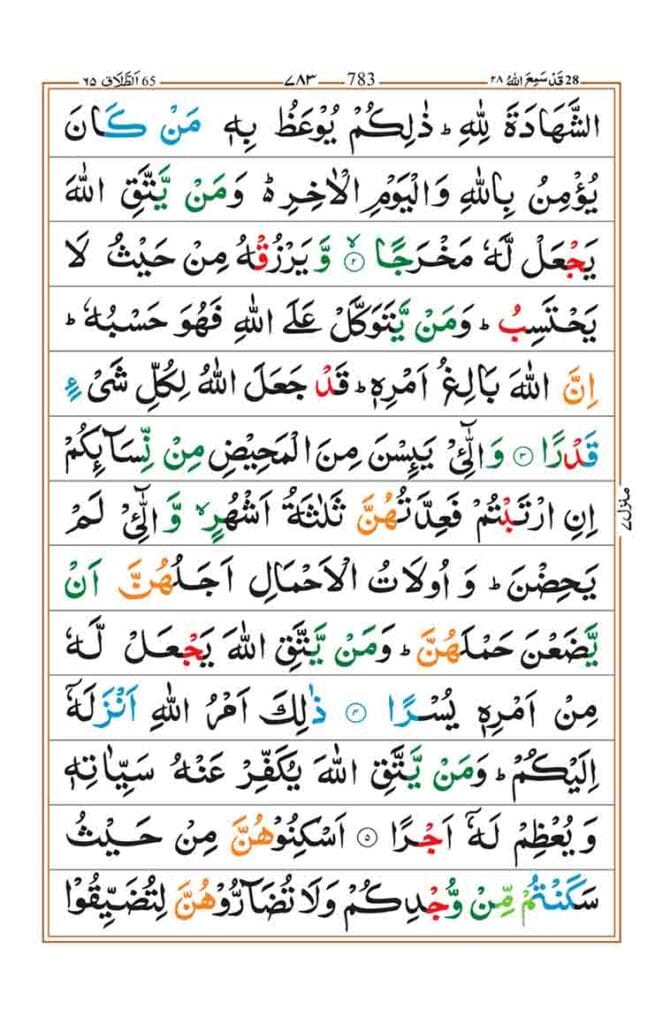 ٦٥ اَلطَّلَاق 65 ٧٨٣ 783 ٢٨ قَدْ سَمِعَ اللهُ 28
الشَّهَادَةَ لِلّٰهِ ؕ ذٰلِكُمْ يُوْعَظُ بِهٖ مَنْ كَانَ
يُؤْمِنُ بِاللّٰهِ وَالْيَوْمِ الْاٰخِرِ ؕ۬ وَمَنْ يَّتَّقِ اللّٰهَ
يَجْعَلْ لَّهٗ مَخْرَجًا ۙ﴿٢﴾ وَّيَرْزُقْهُ مِنْ حَيْثُ لَا
يَحْتَسِبُ ؕ وَمَنْ يَّتَوَكَّلْ عَلَى اللّٰهِ فَهُوَ حَسْبُهٗ ؕ
اِنَّ اللّٰهَ بَالِغُ اَمْرِهٖ ؕ قَدْ جَعَلَ اللّٰهُ لِكُلِّ شَیْءٍ
قَدْرًا ﴿٣﴾ وَالّٰٓـِٔیْ يَئِسْنَ مِنَ الْمَحِيْضِ مِنْ نِّسَآئِكُمْ
اِنِ ارْتَبْتُمْ فَعِدَّتُهُنَّ ثَلٰثَةُ اَشْهُرٍ ۙ وَّالّٰٓـِٔیْ لَمْ
يَحِضْنَ ؕ وَ اُولَاتُ الْاَحْمَالِ اَجَلُهُنَّ اَنْ
يَّضَعْنَ حَمْلَهُنَّ ؕ وَمَنْ يَّتَّقِ اللّٰهَ يَجْعَلْ لَّهٗ
مِنْ اَمْرِهٖ يُسْرًا ﴿٤﴾ ذٰلِكَ اَمْرُ اللّٰهِ اَنْزَلَهٗۤ
اِلَيْكُمْ ؕ وَمَنْ يَّتَّقِ اللّٰهَ يُكَفِّرْ عَنْهُ سَيِّاٰتِهٖ
وَيُعْظِمْ لَهٗۤ اَجْرًا ﴿٥﴾ اَسْكِنُوْهُنَّ مِنْ حَيْثُ
سَكَنْتُمْ مِّنْ وُّجْدِكُمْ وَلَا تُضَآرُّوْهُنَّ لِتُضَيِّقُوْا
منزل ٧